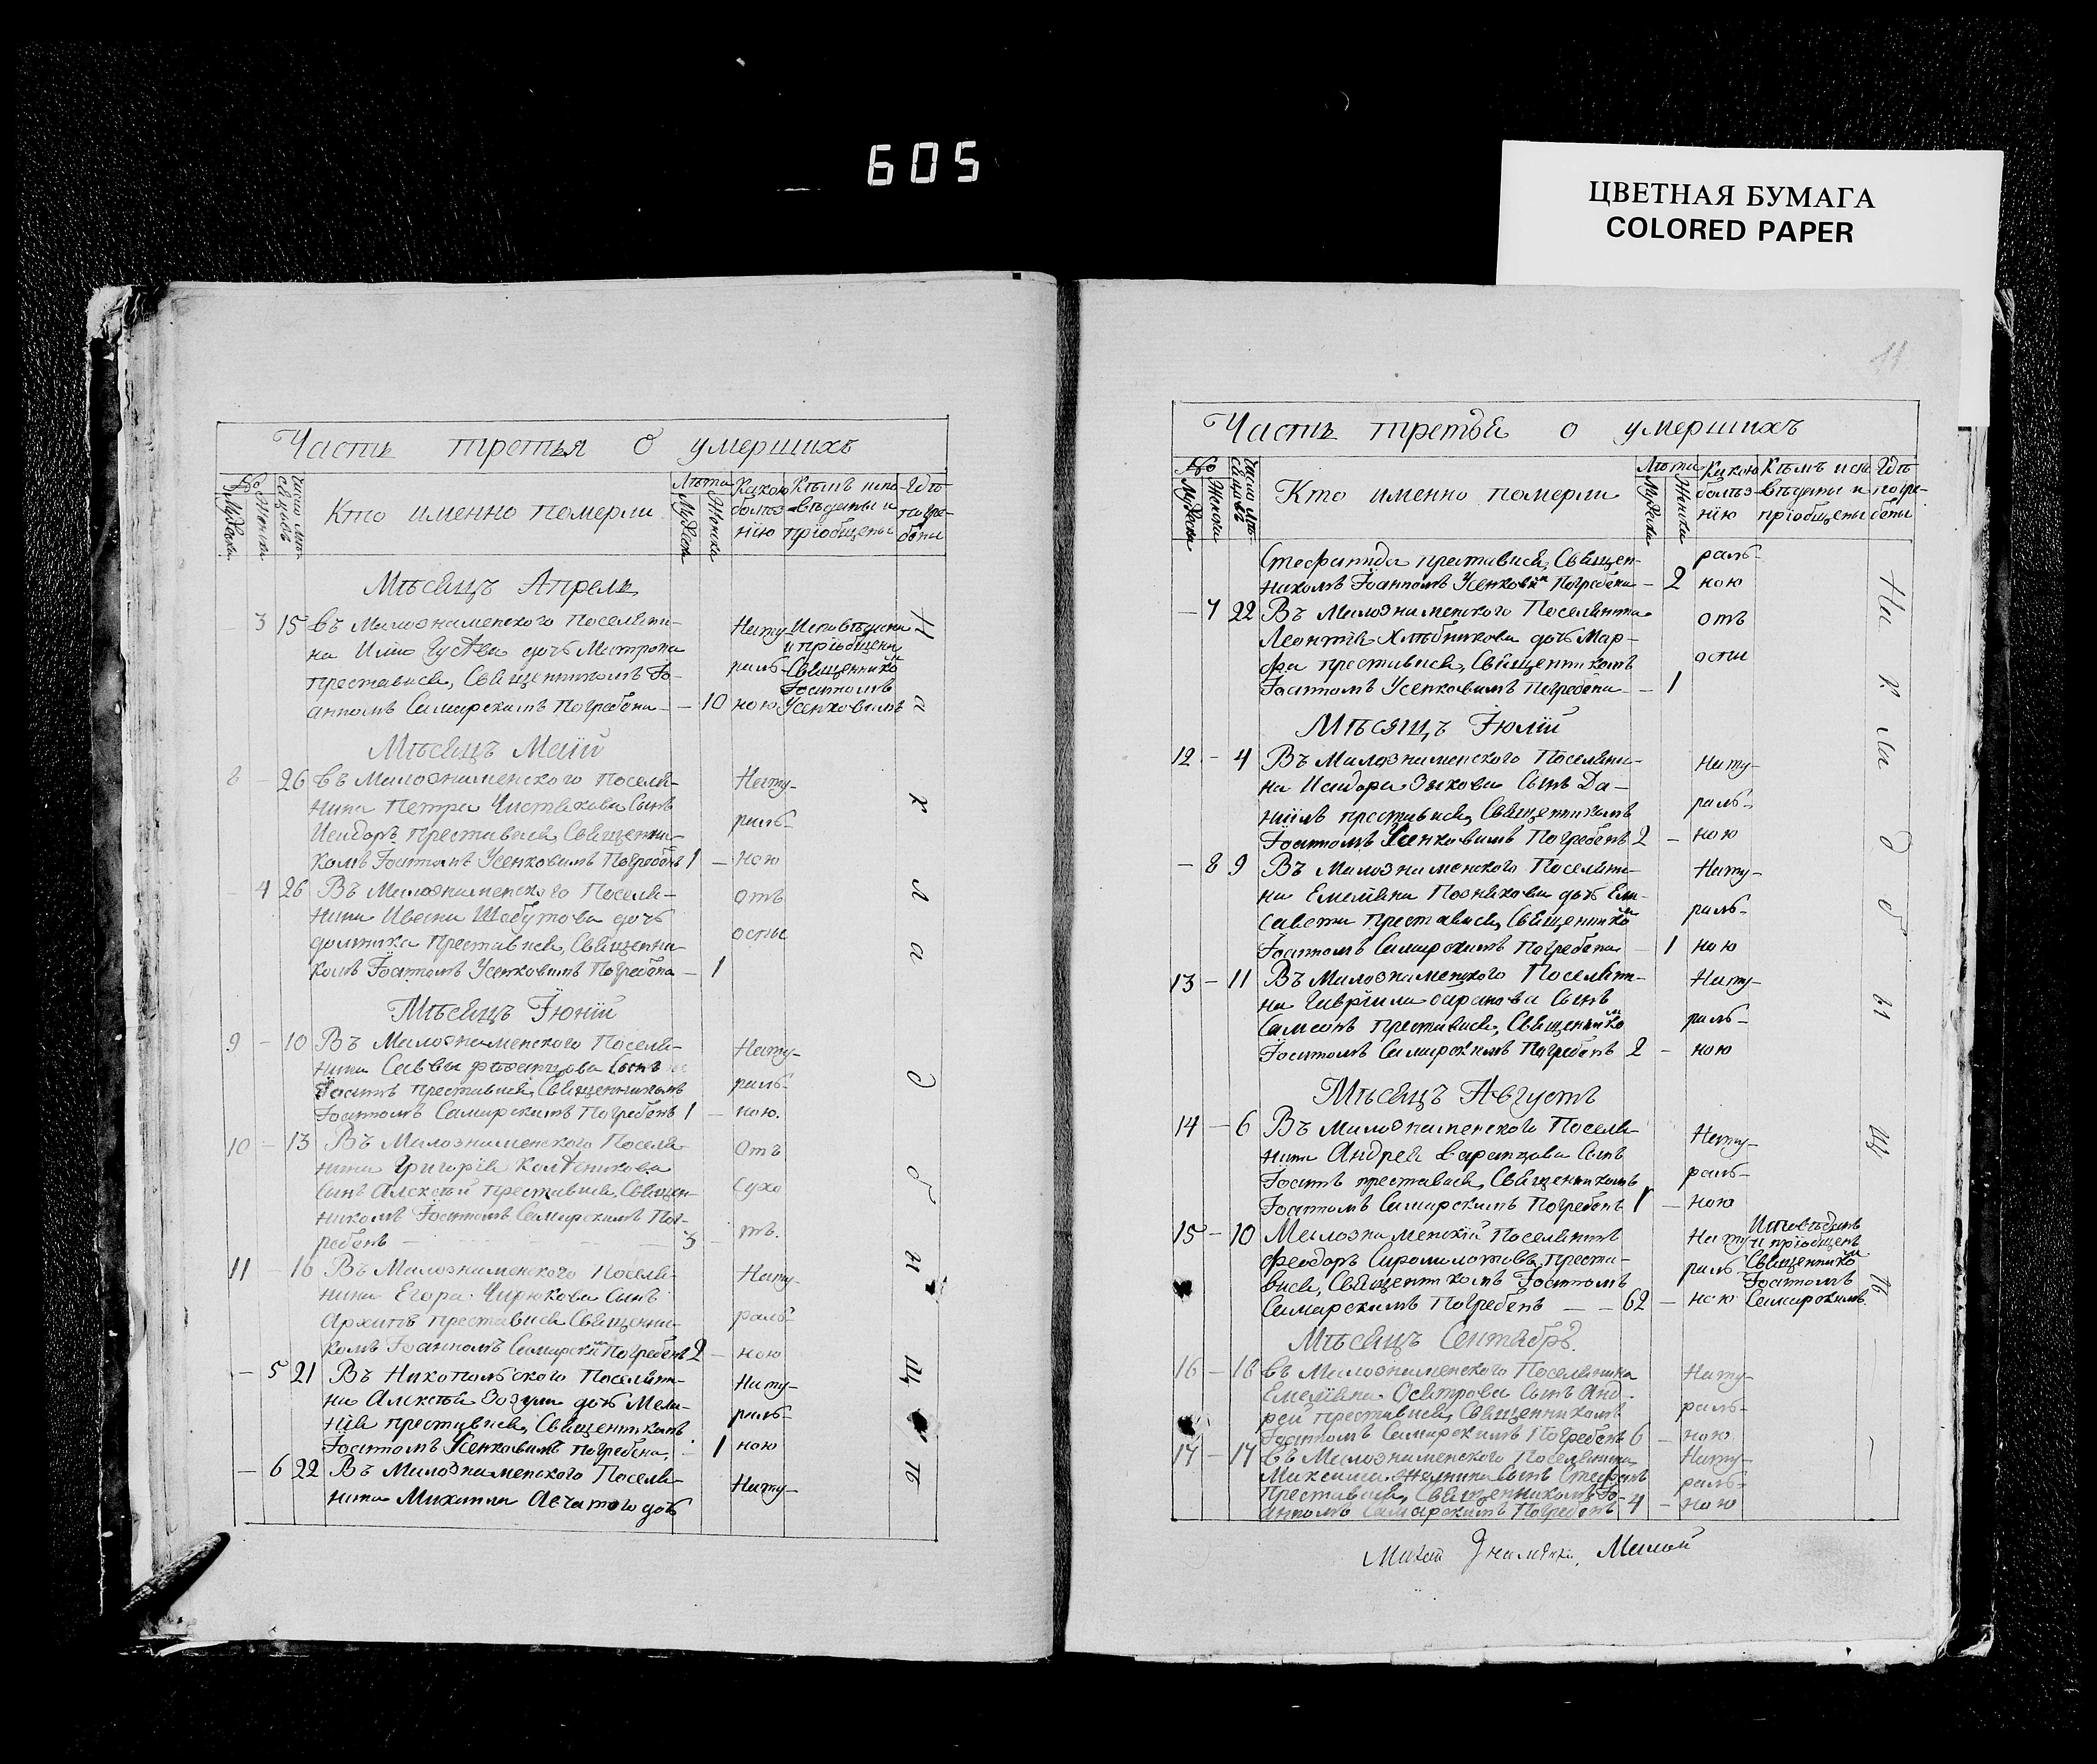 605
ЦВЕТНАЯ БУМАГА
COLORED PAPER
Часть третья о умершихъ
№
Мужеска
Женска
Число мѣсяцовъ
Кто именно померли
Лѣта
Мужеска
Женска
Какою болѣзнію
Кѣмъ исповѣданы и пріобщены
Гдѣ погребены
Мѣсяцъ Апрель
3 15 Въ Милознаменского Поселяни-
на Гусева дочь Матрона
преставися, Священникомъ Іо-
анномъ Самарскимъ Погребена — 10
Нату-
раль-
ною
Исповѣдана
и пріобщена
Священнико
Іоанномъ
Усенковымъ
Мѣсяцъ Маій
8 — 26 Въ Милознаменского Поселя-
нина Петра Чистякова Сынъ
Исидоръ преставися, Священни-
комъ Іоанномъ Усенковымъ Погребенъ 1 —
Нату-
раль-
ною
— 4 26 Въ Милознаменского Поселя-
нина Ивана Шабутова дочь
домника Преставися, Священни-
комъ Іоанномъ Усенковымъ Погребена — 1
отъ
оспы
Мѣсяцъ Іюній
9 — 10 Въ Милознаменского Поселя-
нина Саввы Сынъ
Іоаннъ преставися, Священникомъ
Іоанномъ Самарскимъ Погребенъ 1 —
Нату-
раль-
ною.
10 — 13 Въ Милознаменского Поселя-
нина Григорія Колѣсникова
Сынъ Алексѣй преставися, Священ-
никомъ Іоанномъ Самарскимъ Пог-
ребенъ — 3
Отъ
Сухо
тъ.
11 — 16 Въ Милознаменского Поселя-
нина Егора Чирюкова Сынъ
Архипъ преставися Священни-
комъ Іоанномъ Самарскимъ Погребенъ 2 —
Нату-
раль-
ною
— 5 21 Въ Никопольского Поселяни-
на Алексѣя Зозули дочь Мела-
нія преставися, Священникомъ
Іоанномъ Усенковымъ погребена. — 1
Нату-
раль-
ною
— 6 22 Въ Милознаменского Поселя-
нина Михаила дочь
Нату-
На кладбищѣ
11
Часть третья о умершихъ
№
Мужеска
Женска
Число мѣсяцовъ
Кто именно померли
Лѣта
Мужеска
Женска
Какою болѣзнію
Кѣмъ исповѣданы и пріобщены
Гдѣ погребены
Стефанида преставися, Священ-
никомъ Іоанномъ Усенковым Погребена — 2
раль-
ною
— 7 22 Въ Милознаменского Поселянина
Леонтія Хлѣбникова дочь Мар-
фа преставися, Священникомъ
Іоанномъ Усенковымъ Погребена — 1
отъ
оспы
Мѣсяцъ Іюлій
12 — 4 Въ Милознаменского Поселяни-
на Исидора Зыкова Сынъ Да-
ніилъ преставися, Священникомъ
Іоанномъ Усенковымъ Погребенъ 2 —
Нату-
раль-
ною
— 8 9 Въ Милознаменского Поселяни-
на Емеліяна Познякова дочь Ели-
савета Преставися, Священником
Іоанномъ Самарскимъ Погребена — 1
Нату-
раль-
ною
13 — 11 Въ Милознаменского Поселяни-
на Гавріила Сынъ
Самсонъ преставися, Священником
Іоанномъ Самарскимъ Погребенъ 2 —
Нату-
раль-
ною
Мѣсяцъ Августъ
14 — 6 Въ Милознаменского Поселя-
нина Андрея Сынъ
Іоаннъ преставися, Священникомъ
Іоанномъ Самарскимъ Погребенъ 1 —
Нату-
раль-
ною
15 — 10 Милознаменскій Поселянинъ
Феодоръ Сиромолотовъ преста-
вися, Священникомъ Іоанномъ
Самарскимъ Погребенъ — — 62 —
Нату
раль
ною
Исповѣданъ
и пріобщенъ
Священником
Іоанномъ
Самарскимъ
Мѣсяцъ Сентябрь.
16 — 16 Въ Милознаменского Поселянина
Емеліяна Осетрова Сынъ Анд-
рей преставися, Священникомъ
Іоанномъ Самарскимъ Погребенъ 6 —
Нату-
раль-
ною
17 — 17 Въ Милознаменского Поселянина
Максима Сынъ Стефанъ
Преставися, Священникомъ Іо-
анномъ Самарскимъ Погребенъ 4 —
Нату-
раль-
ною
На кладбищѣ